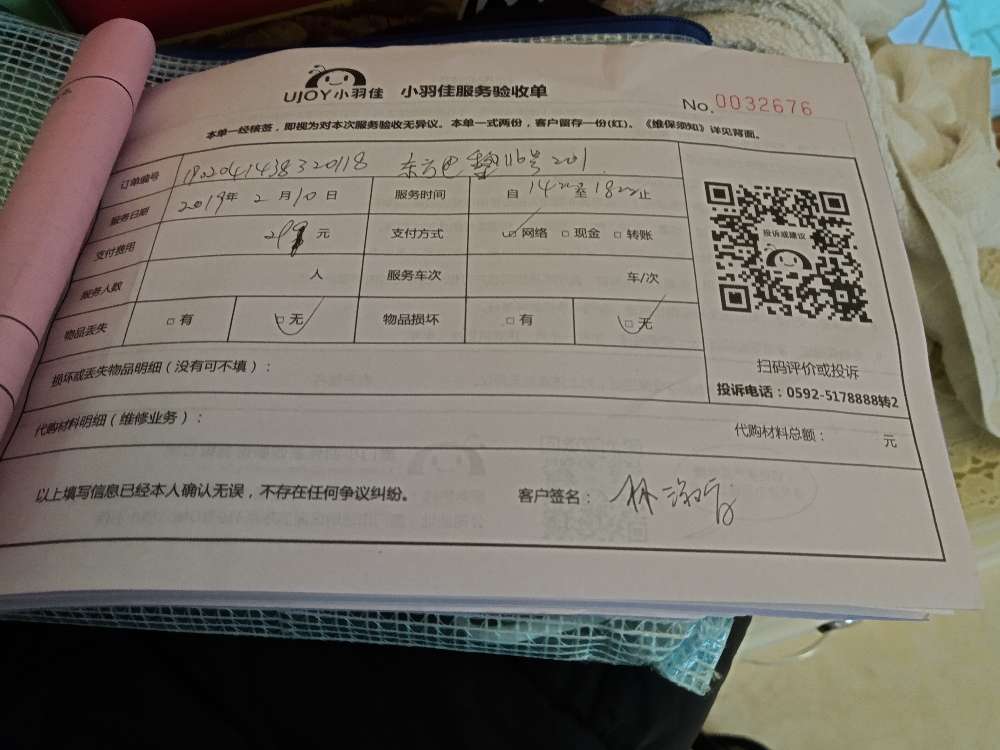 UJOY小羽佳 小羽佳服务验收单
No.0032676
本单一经核签，即视为对本次服务验收无异议。本单一式两份，客户留存一份(红)。《维保须知》详见背面。
订单编号 1902041438320118 116号201
服务日期 2019年2月10日 服务时间 自14 至18 止
支付费用 元 支付方式 网络 □现金 □转账
服务人数 人 服务车次 车/次
物品丢失 □有 □无 物品损坏 □有 □无
投诉或建议
扫码评价或投诉
投诉电话：0592-5178888转2
损坏或丢失物品明细（没有可不填）：
代购材料明细（维修业务）： 代购材料总额： 元
以上填写信息已经本人确认无误，不存在任何争议纠纷。 客户签名：林